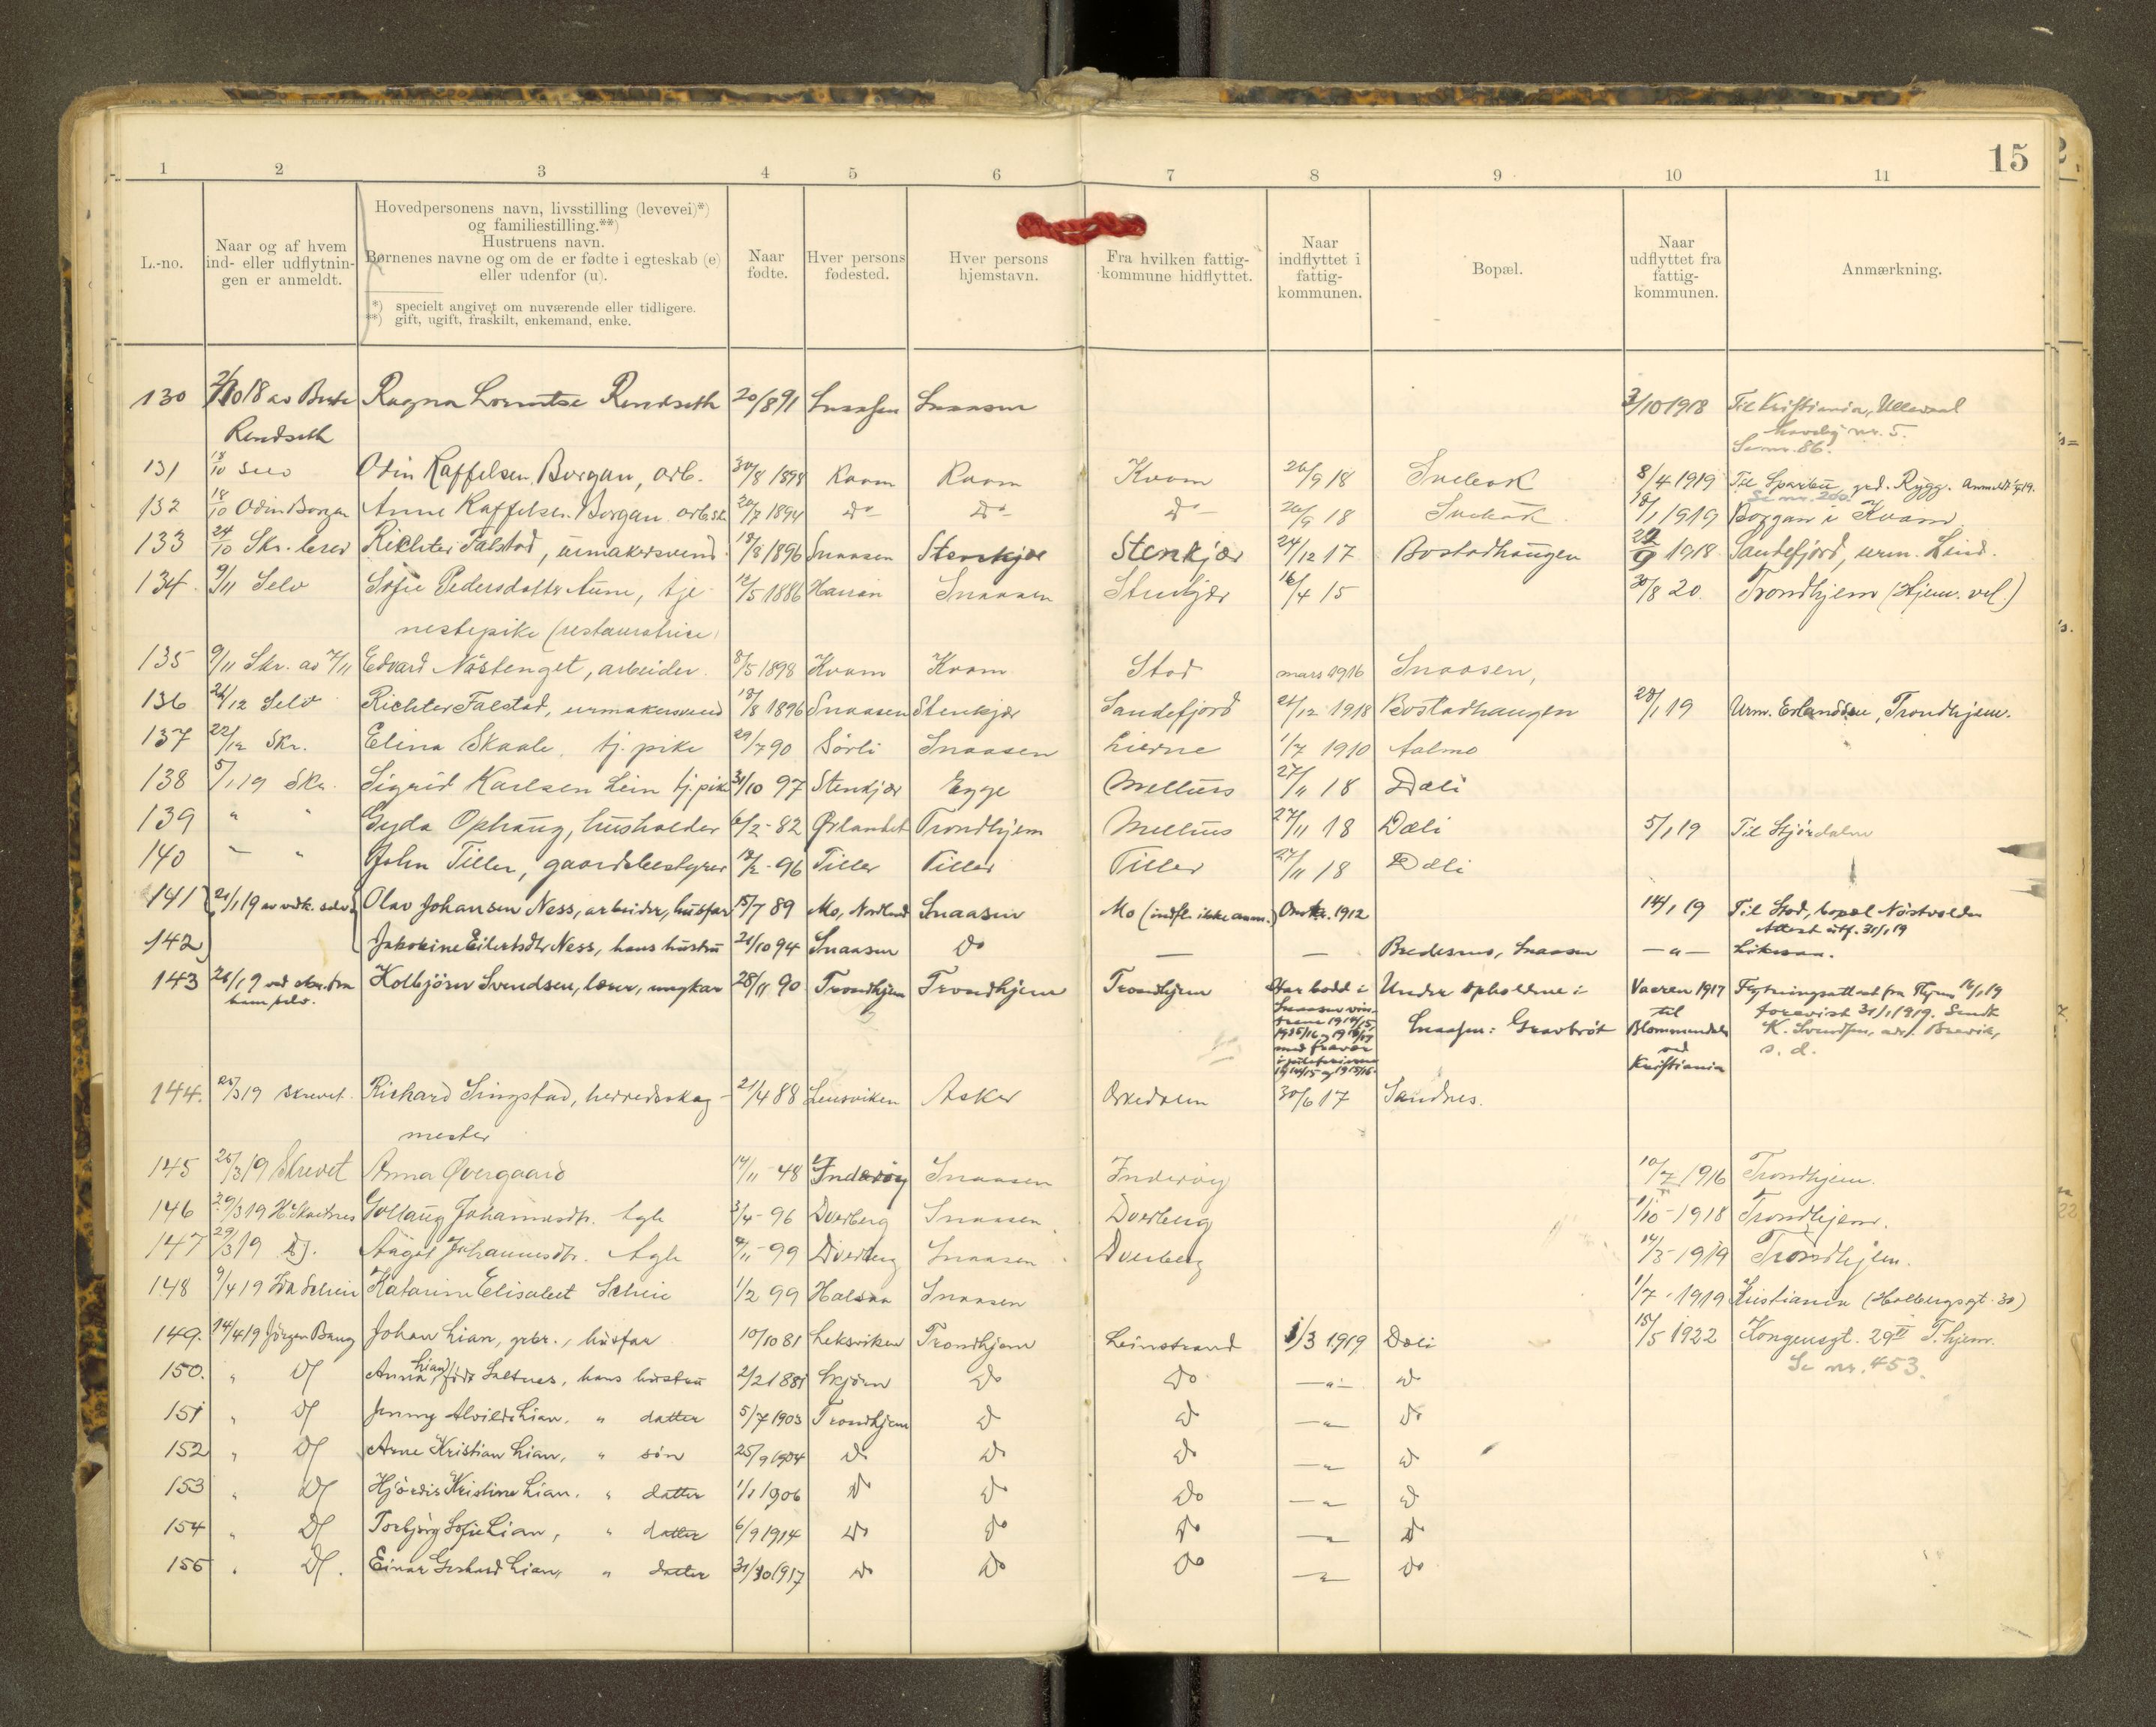 15
1 2 3 4 5 6 7 8 9 10 11
L.-no.
Naar og af hvem
ind- eller udflytnin-
gen er anmeldt.
Hovedpersonens navn, livsstilling (levevei)*)
og familiestilling.**)
Hustruens navn.
Børnenes navne og om de er fødte i egteskab (e)
eller udenfor (u).
*) specielt angivet om nuværende eller tidligere.
**) gift, ugift, fraskilt, enkemand, enke.
Naar
fødte.
Hver persons
fødested.
Hver persons
hjemstavn.
Fra hvilken fattig-
kommune hidflyttet.
Naar
indflyttet i
fattig-
kommunen.
Bopæl.
Naar
udflyttet fra
fattig-
kommunen.
Anmærkning.
130 2/10 18 av Ragna Lorentse Rendseth 20/8 91 Snaasen Snaasen 3/10 1918 Til Kristiania, Ullevaal
Rendseth haveby nr. 5.
Se nr. 86.
131 18/10 selv Odin Raffelsen Borgan, arb. 30/8 1898 Kvam Kvam Kvam 26/9 18 Snekok 8/4 1919 Til Sparbu, grd. Rygg.
Se nr. 200.
132 18/10 Odin Borgan Anne Raffelsen Borgan 20/7 1894 do do do 26/9 18 Snekok 18/1 1919 Borgan i Kvam
133 24/10 Skr. brev Richter Falstad, urmakersvend 18/8 1896 Snaasen Stenkjær Stenkjær 24/12 17 Bostadhaugen 22/9 1918 Sandefjord, urm. Lind.
134. 9/11 Selv Sofie Pedersdatter Aune, tje- 12/5 1886 Harran Snaasen Stenkjær 16/4 15 30/8 20. Trondhjem (Hjem. vel.)
nestepike (restauratrice)
135 9/11 Skr. av 7/11 Edvard Nöstenget, arbeider. 8/5 1898 Kvam Kvam Stod mars 1916 Snaasen,
136 24/12 Selv Richter Falstad, urmakersvend 18/8 1896 Snaasen Stenkjær Sandefjord 24/12 1918 Bostadhaugen 28/1 19 Urm. Erlandsen, Trondhjem.
137 22/12 Skr. Elina Skaale, tj. pike 29/7 90 Sörli Snaasen Lierne 1/7 1910 Aalmo
138 5/1 19 Skr. Sigrid Karlsen Lein tj. pike 31/10 97 Stenkjær Egge Melhus 27/11 18 Dæli
139 " " Gyda Ophaug, husholder 6/2 - 82 Ørlandet Trondhjem Melhus 27/11 18 Dæli 5/1 19 Til Stjördalen
140 - " John Tiller, gaardsbestyrer 12/2 - 96 Tiller Tiller Tiller 27/11 18 Dæli
141 21/1 19 av vedk. selv Olav Johansen Ness, arbeider, husfar 15/7 89 Mo, Nordland Snaasen Mo (indfl. ikke anm.) Omkr. 1912 14/1 19 Til Stod, bopæl Nöstvolden
Attest utf. 31/1 19
142 Jakobine Eilertsdtr Ness, hans hustru 21/10 94 Snaasen do — — Bredesmo, Snaasen —"— Löksaa.
143 26/1 19 ved skr. fra Kolbjörn Svendsen, lærer, ungkar 28/11 90 Trondhjem Trondhjem Trondhjem Har bodd i Under opholdene i Vaaren 1917 Flytningsattest fra Thjem 16/1 19
ham selv. Snaasen vin- Snaasen: Gravbröt til forevist 31/1 1919. Sendt
trene 1914/15, Blommendalen K. Svendsen, adr. Brevik,
1915/16 og 1916/17 ved s. d.
med fravær Kristiania
i juleferiene
1914/15 og 1915/16.
144. 25/3 19 skrevet. Richard Singstad, herredsskog- 21/4 88 Lensviken Asker Orkedalen 30/6 17 Sandnes.
mester
145 26/3 19 Skrevet Anna Øvergaard 14/11 - 48 Inderøy Snaasen Inderøy 10/7 1916 Trondhjem.
146 29/3 19 H. Skavlnes Gollaug Johannesdtr. Agle 3/4 - 96 Dverberg Snaasen Dverberg 1/10 - 1918 Trondhjem.
147 29/3 19 Dj. Aagot Johannesdtr. Agle 4/11 - 99 Dverberg Snaasen Dverberg 14/3 - 1919 Trondhjem.
148 9/4 19 Ida Schei Katarine Elisabet Schei 1/2 99 Halsaa Snaasen 1/7. 1919 Kristiania (Holbergsgt. 30)
149. 14/4 19 Jörgen Baug Johan Lian, grbr., husfar 10/10 81 Leksviken Trondhjem Leinstrand 1/3 1919 Dæli 15/5 1922 Kongensgt. 29 II T.hjem.
Se nr. 453.
150. " Df Anna Lian, född Saltnes, hans hustru 2/2 1881 Skjörn Do Do —"— do
151 " Df Jenny Alvilde Lian, " datter 5/7 1903 Trondhjem do do —"— do
152 " Df Arne Kristian Lian, " sön 25/9 1904 do do do —"— do
153 " Df Hjördis Kristine Lian, " datter 1/1 1906 do do Do —"— do
154 " Df Torbjörg Sofie Lian, " datter 6/9 1914 do do do —"— do
155 " Df. Einar Gerhard Lian, " datter 31/10 1917 do do do —"— do